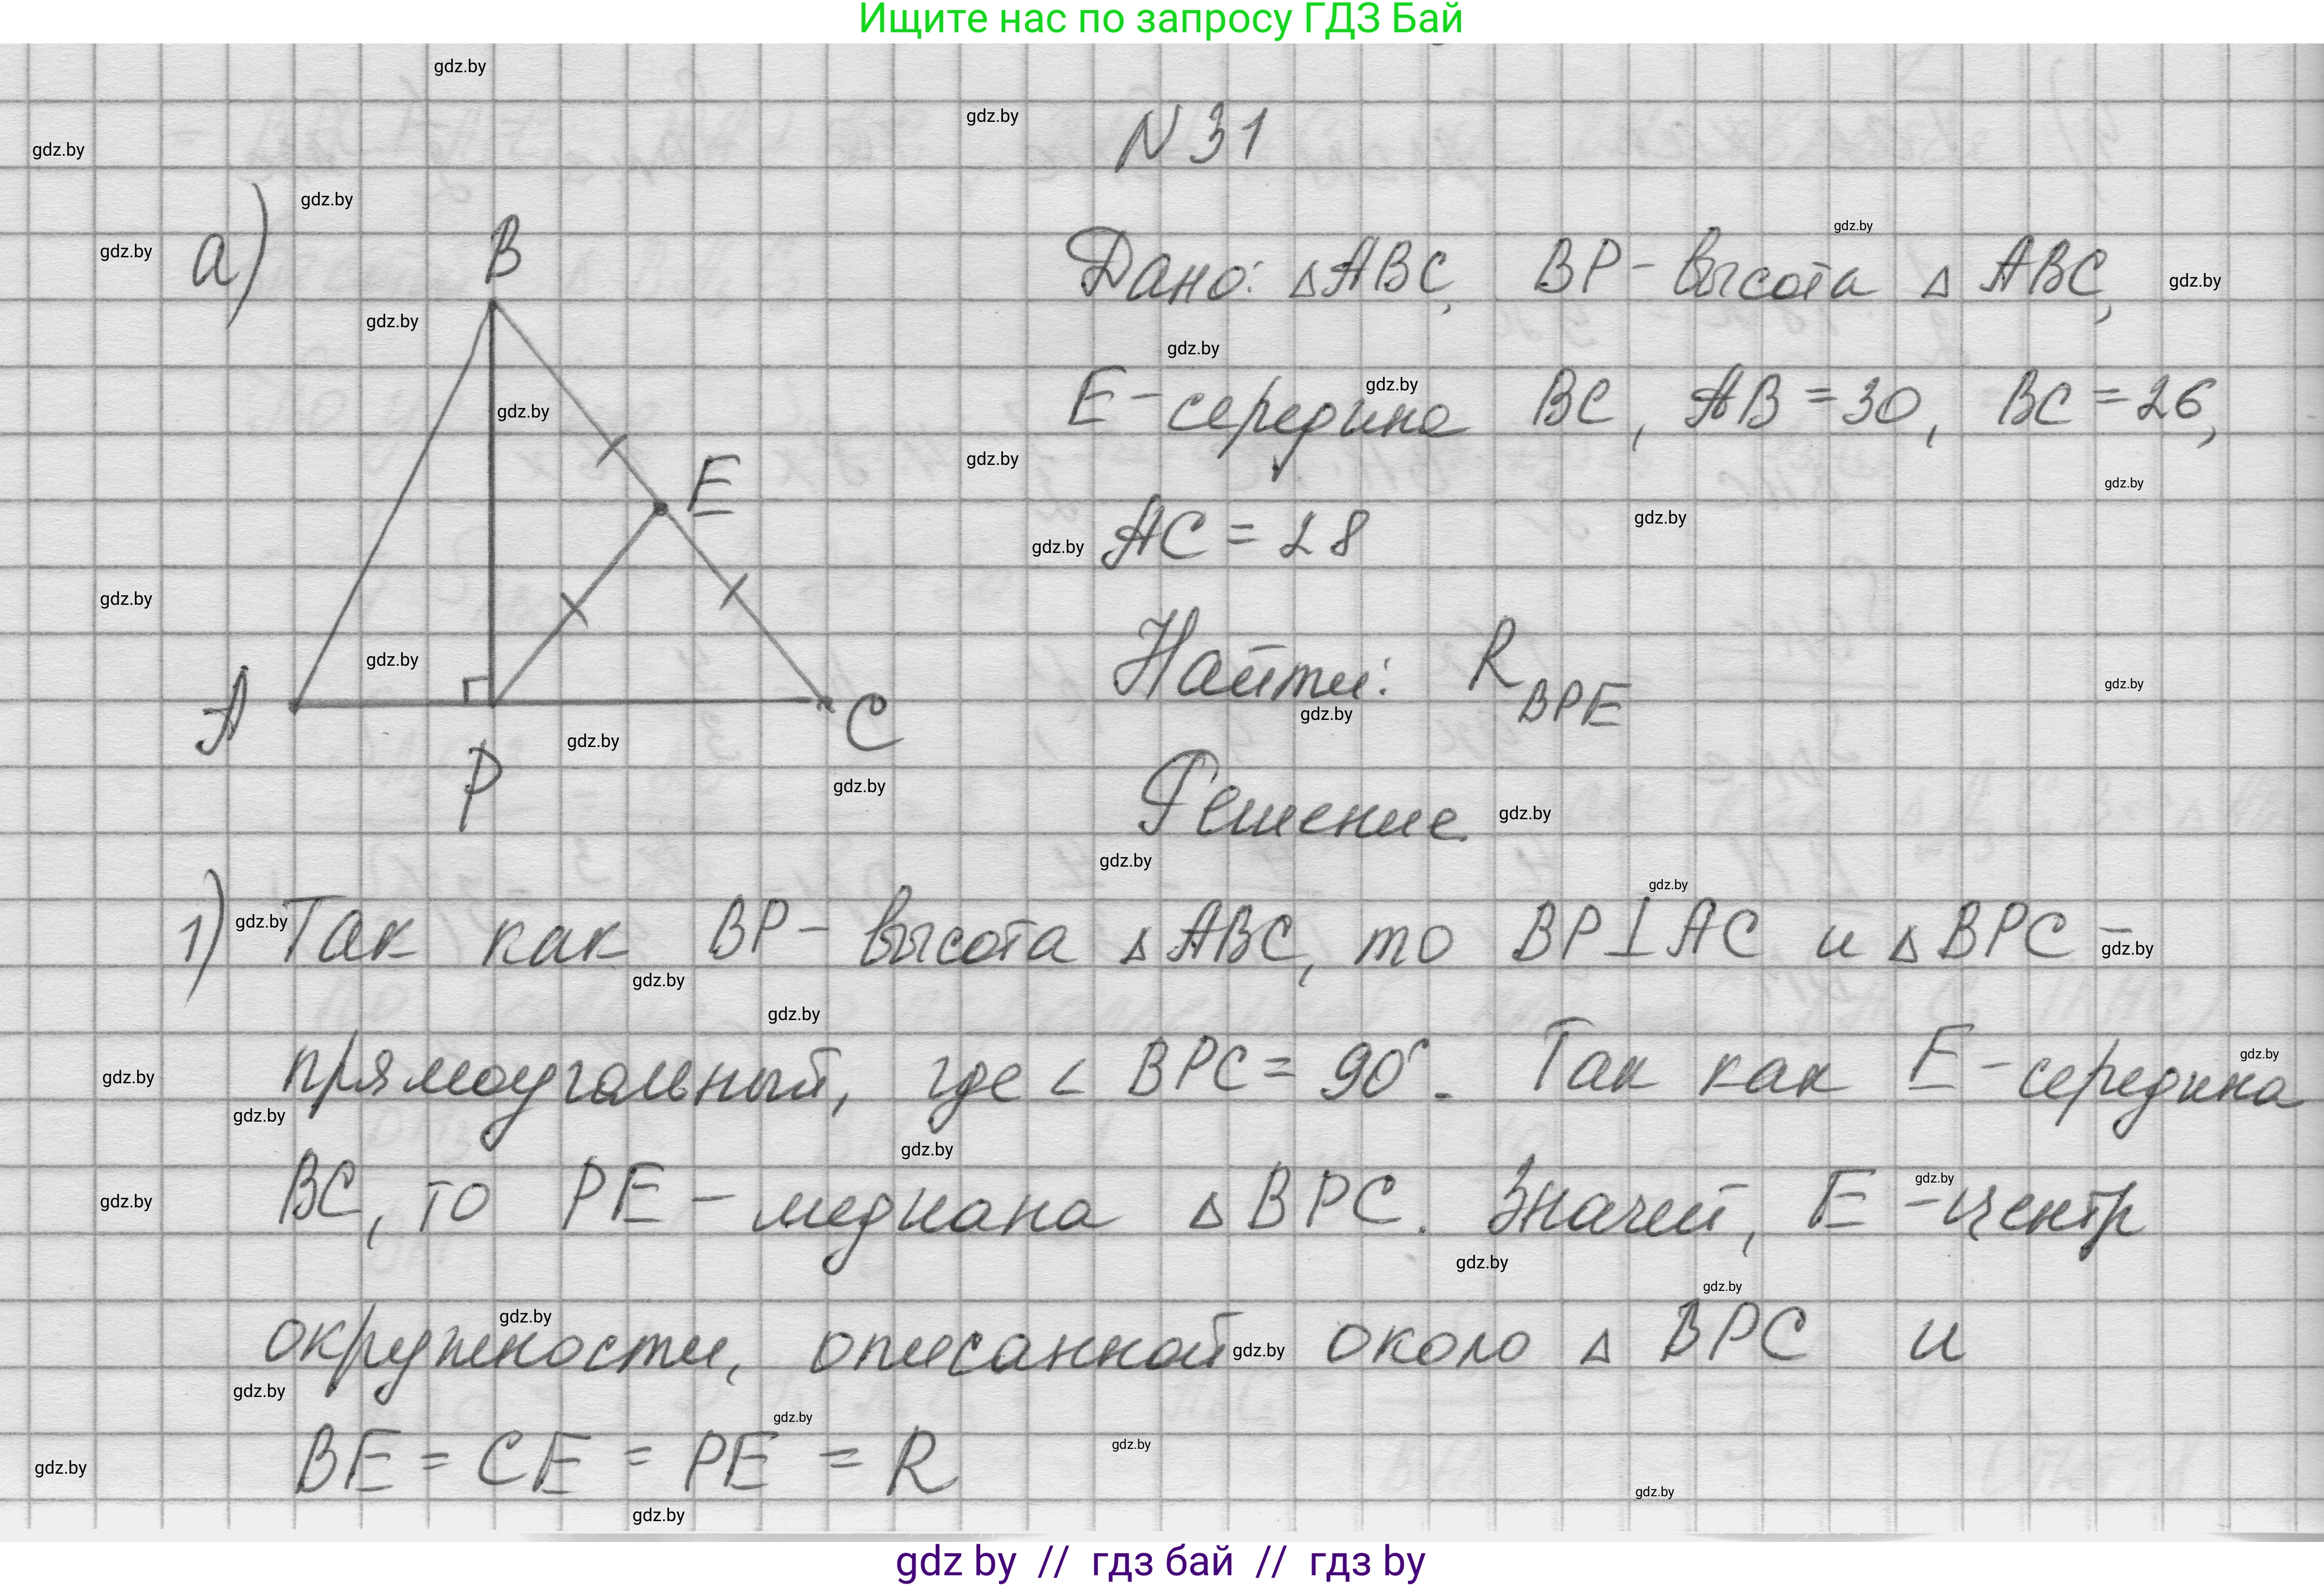 Ищите нас по запросу ГДЗ Бай
N 31
а)
B
E
A
C
P
Дано: △ABC, BP - высота △ABC,
E - середина BC, AB = 30, BC = 26,
AC = 28
Найти: R BPE
Решение
1) Так как BP - высота △ABC, то BP⊥AC и △BPC -
прямоугольный, где ∠ BPC = 90°. Так как E - середина
BC, то PE - медиана △BPC. Значит, E - центр
окружности, описанной около △ BPC и
BE = CE = PE = R
gdz.by
gdz by // гдз бай // гдз by